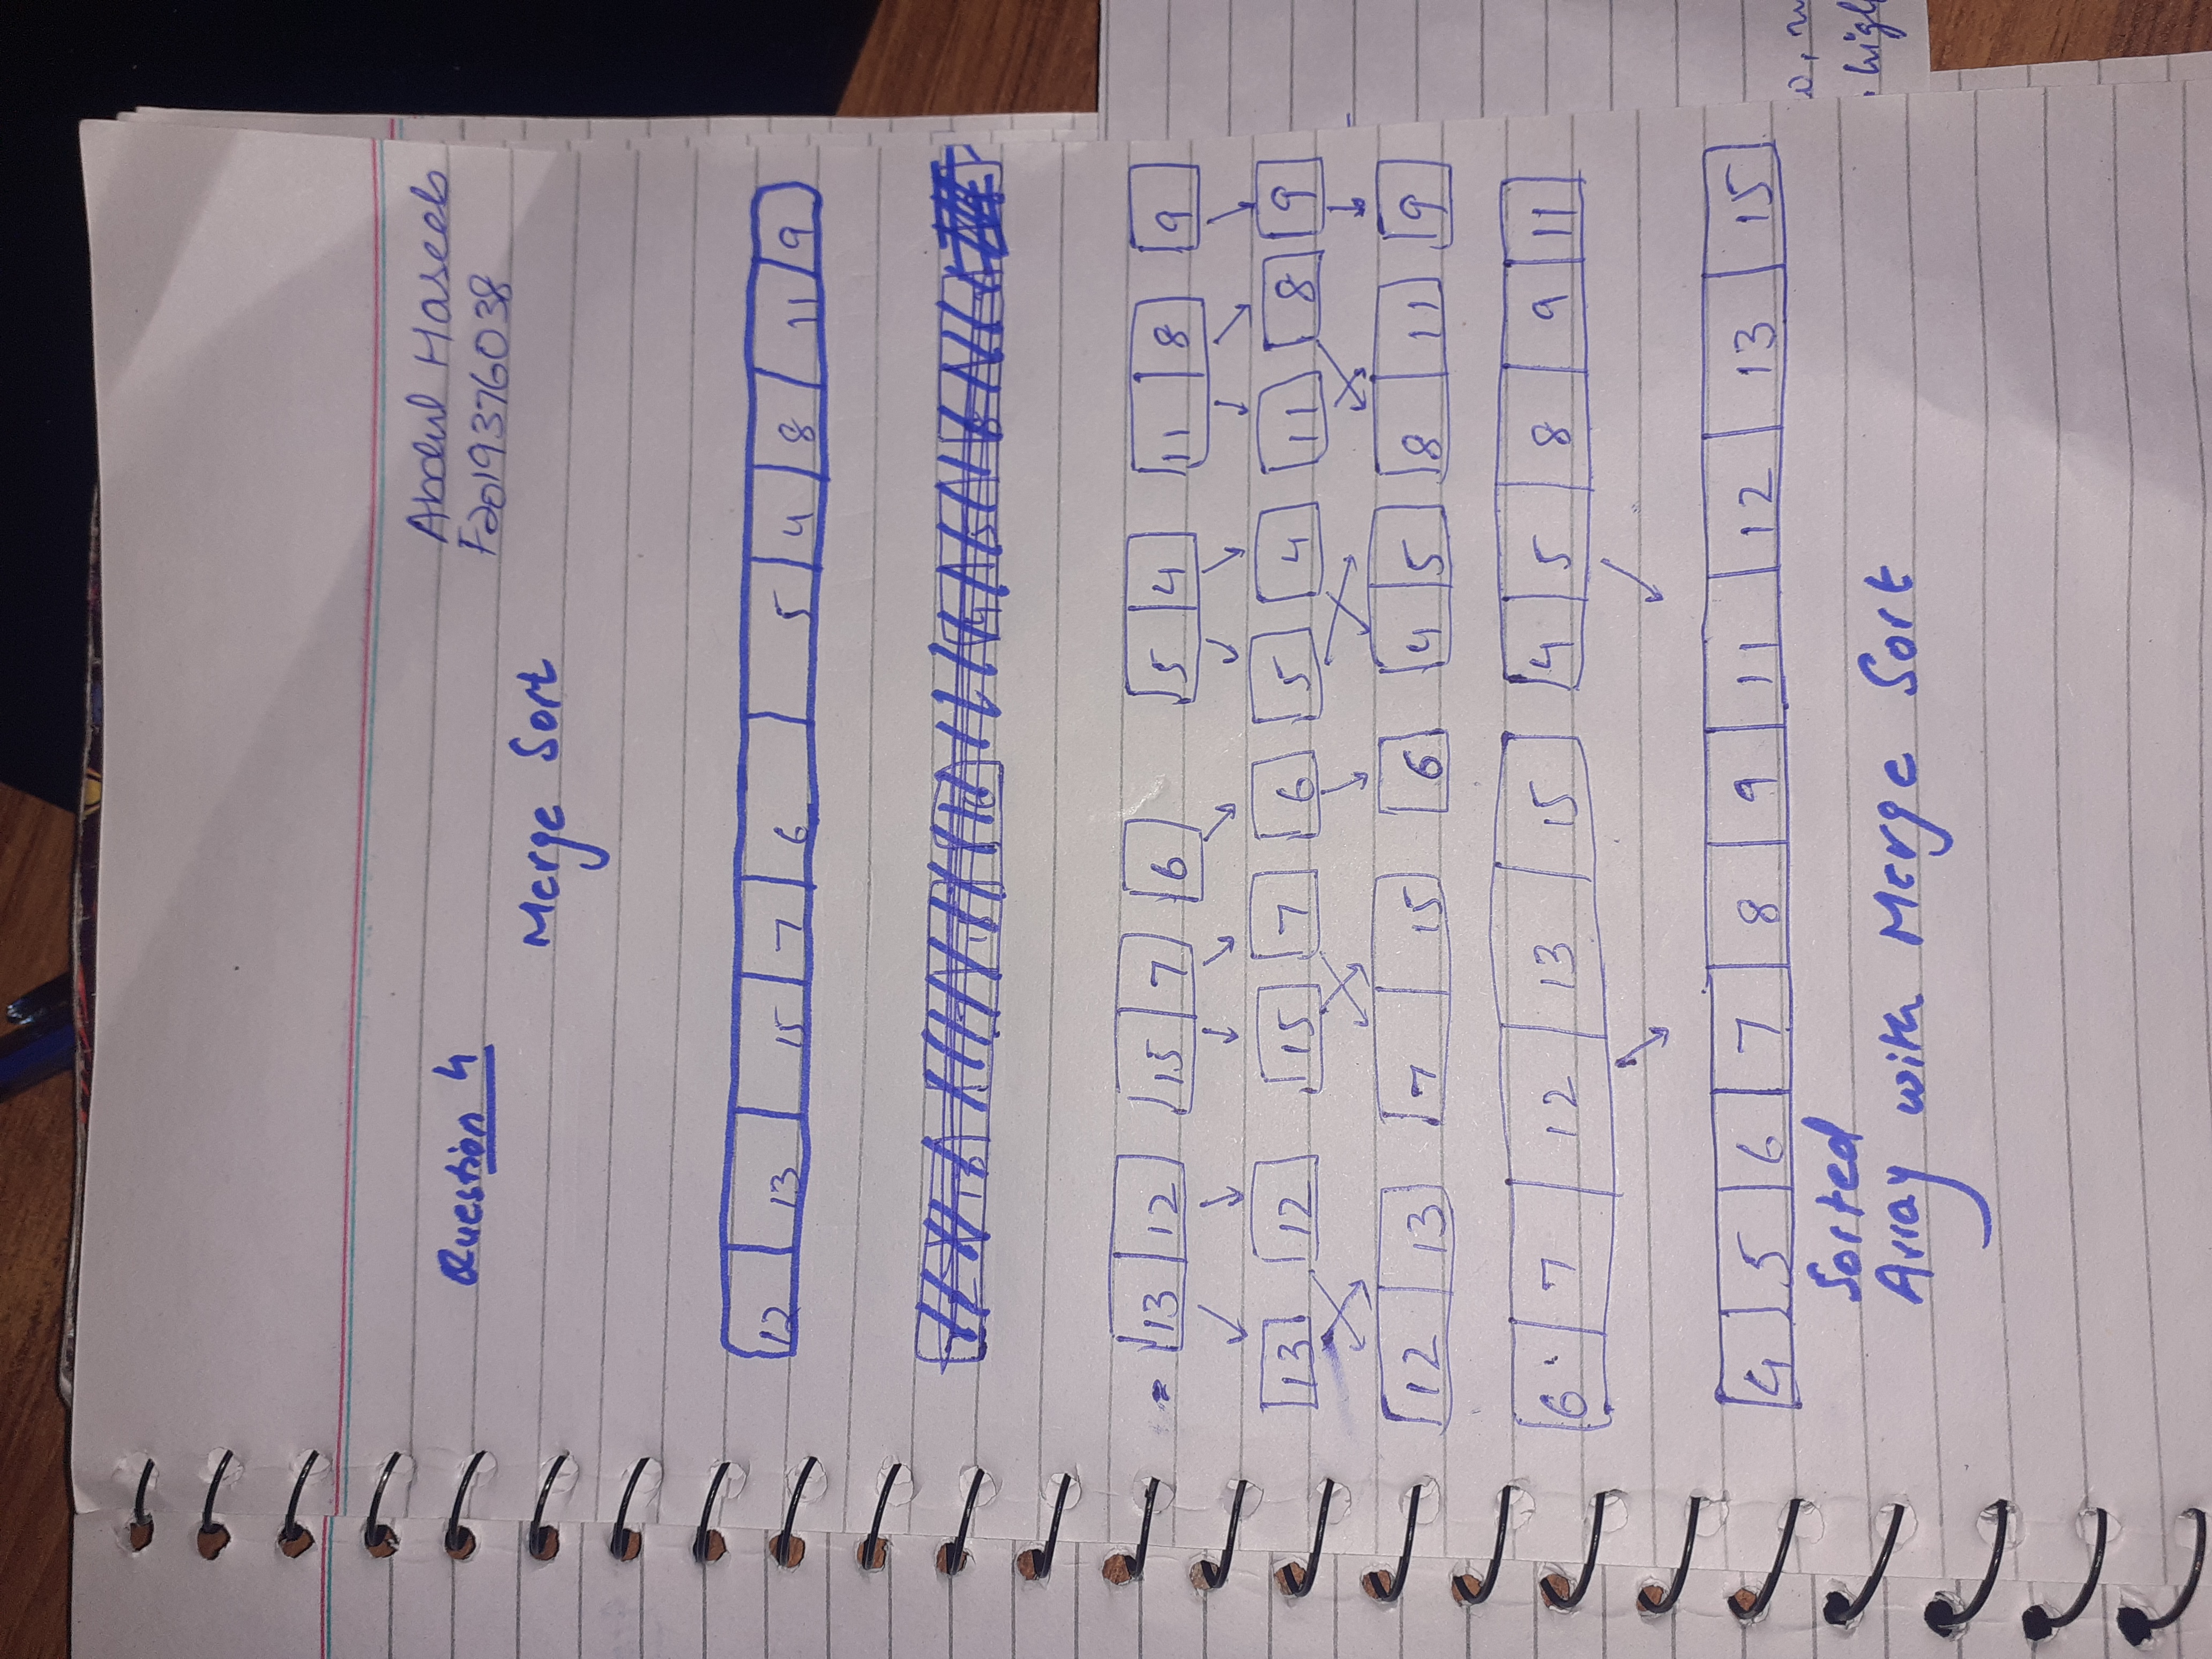 Question 4
Abdul Haseeb
F2019376038
Merge Sort
12 13 15 7 6 5 4 8 11 9
13 12 15 7 6 5 4 11 8 9
13 12 15 7 6 5 4 11 8 9
12 13 7 15 6 4 5 8 11 9
6 7 12 13 15 4 5 8 9 11
4 5 6 7 8 9 11 12 13 15
Sorted
Array with Merge Sort